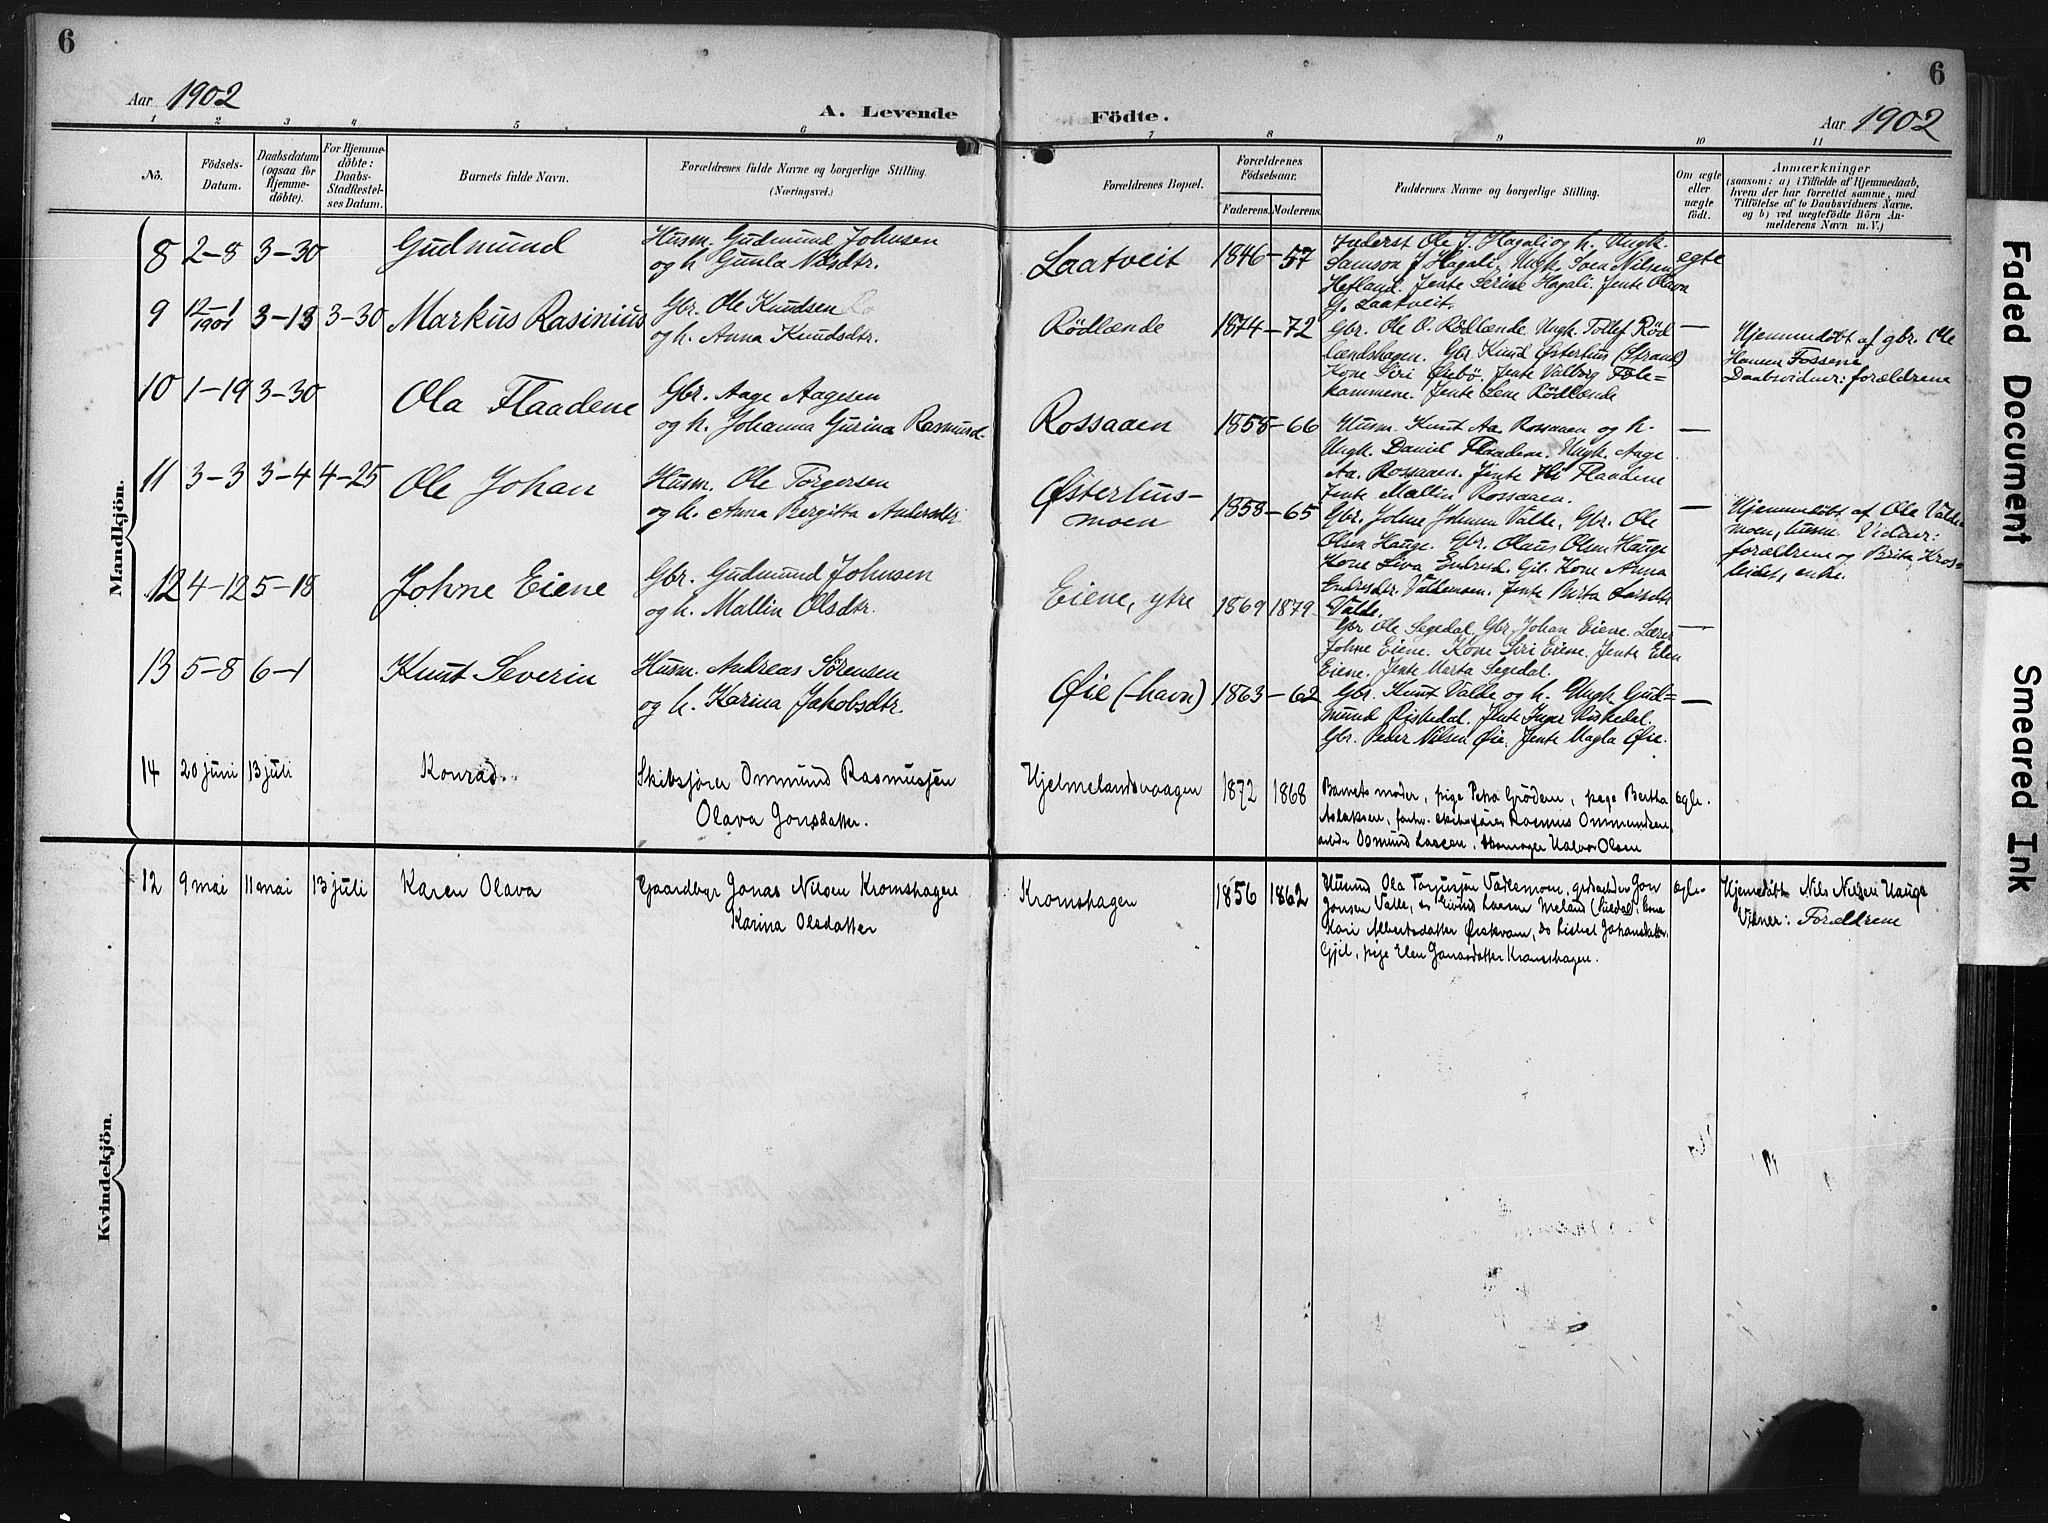 6
6
Aar 1902
A. Levende
Födte.
Aar 1902
1 2 3 4 5 6 7 8 9 10 11
No.
Födsels-
Datum.
Daabsdatum
(ogsaa for
Hjemme-
döbte).
For Hjemme-
döbte:
Daabs-
Stadfæstel-
ses Datum.
Barnets fulde Navn.
Forældrenes fulde Navne og borgerlige Stilling.
(Næringsvei.)
Forældrenes Bopæl.
Forældrenes
Födselsaar.
Faderens. Moderens.
Faddernes Navne og borgerlige Stilling.
Om ægte
eller
uægte
födt.
Anmærkninger
(saasom: a) i Tilfælde af Hjemmedaab,
hvem der har forrettet samme, med
Tilföielse af to Daabsvidners Navne.
og b) ved uægtefödte Börn An-
melderens Navn m. V.)
Mandkjön.
8 2-8 3-30 Gudmund
Husm. Gudmund Johnsen
og h. Gunla Nilsdtr.
Laatveit 1846-57
Inderst Ole J. Hagali og h. Ungk.
Samson J. Hagali, Ungk. Sven Nilsen
Hetland. Jente Serine Hagali. Jente Olavn
G. Laatveit.
egte
9 12-1 1901 3-13 3-30 Markus Rasinius
Gbr. Ole Knudsen
og h. Anna Knudsdtr.
Rödlænde 1874-72
Gbr. Ole O. Rödlænde Ungk. Tollef Röd
lændshagen. Gbr. Knud Østerhus (Strand)
Kone Siri Øsebö. Jente Valborg
kammene. Jente Lene Rödlænde
—
Hjemmedöbt af gbr. Ole
Hansen Fossene
Daabsvidner: forældrene
10 1-19 3-30 Ola Flaadene
Gbr. Aage Aagesen
og h. Johanna Gurina Rasmusd-
Rossaaen 1858-66
Husm. Knut Aa. Rossaaen og h.
Ungk. Daniel Flaadene. Ungk. Aage
Aa. Rossaaen. Jente Flaadene
Jente Mallin Rossaaen.
—
11 3-3 3-4 4-25 Ole Johan
Husm. Ole Torgersen
og h. Anna Bergitta Andersdtr
Østerhus-
moen
1858-65
Gbr. Johne Johnsen Valde, Gbr. Ole
Olsen Hauge. Gbr. Olaus Olsen Hauge
Kone Siva Endresd. Gil. Kone Anna
Endresdtr. Valdemoen. Jente Berta Larsdtr
Valde.
—
Hjemmedöbt af Ole Valde-
moen, husm. Vidner:
forældrene og Brita Kros-
leidet, enke.
12 4-12 5-18 Johne Eiene
Gbr. Gudmund Johnsen
og h. Mallin Olsdtr.
Eiene, ytre 1869 1879
Gbr Ole Segedal. Gbr. Johan Eiene. Lærer
Johne Eiene. Kone Siri Eiene. Jente Elen
Eiene. Jente Marta Segedal.
—
13 5-8 6-1 Knut Severin
Husm. Andreas Sörensen
og h. Karina Jakobsdtr.
Øie (-havn) 1863-62
Gbr. Knut Valde og h. Ungk. Gud=
mund Riskedal. Jente Inger Riskedal.
Gbr. Peder Nilsen Øie. Jente Magla Øie.
—
14 20 juni 13 juli Konrad.
Skibsförer Ommund Rasmussen
Olava Jonsdatter.
Hjelmelandsvaagen 1872 1868
Barnets moder, pige Petra Grödem, pige Bertha
Aslaksen, forh. skibsförer Rasmus Ommundsen,
Osmund Larsen, Halvor Olsen
egte.
Kvindekjön.
12 9 mai 11 mai 13 juli Karen Olava
Gaardbgr Jonas Nilsen Kromshagen
Karina Olsdatter
Kromshagen 1856 1862
Husmd Ola Torgersen Valdemoen, Jon
Jonsen Valle, do Eivind Larsen Meland (Suldal), kone
Kari Albertsdatter Øiskvam, do Lisbet Johansdatter
Gjil, pige Elen Jonasdatter Kromshagen.
egte.
Hjemedöbt Nils Nilsen Hauge
Vidner: Forældrene
Faded Document
Smeared Ink